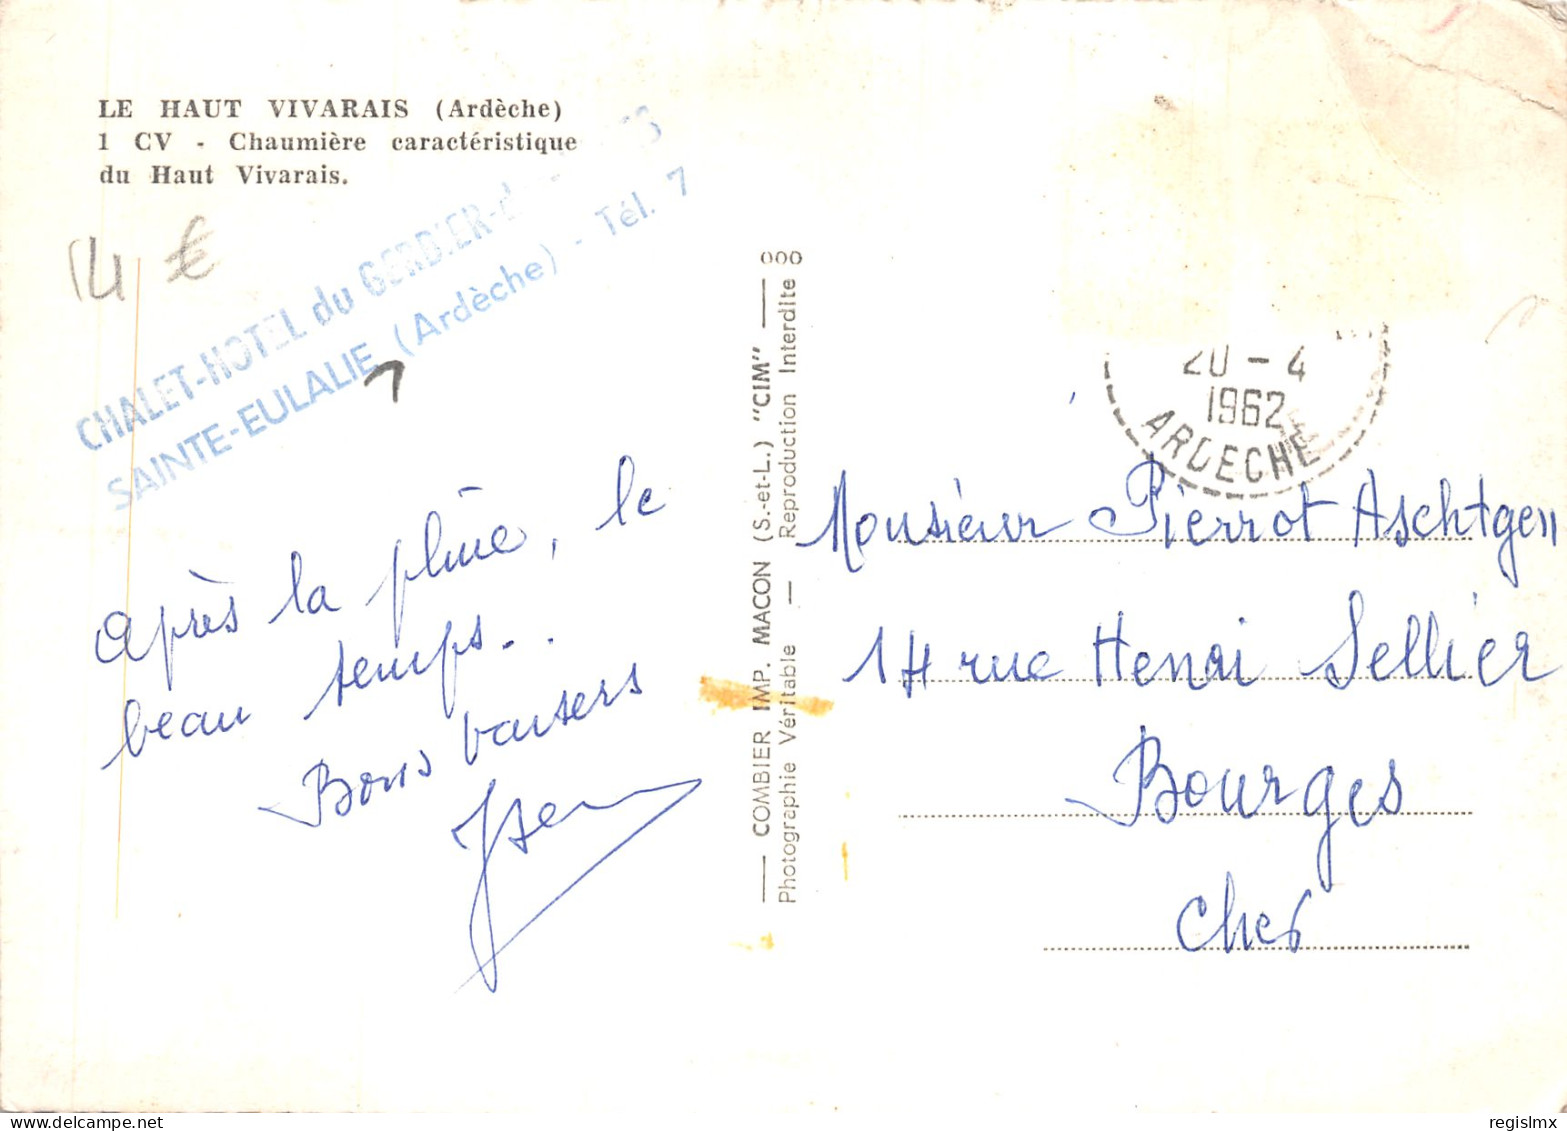 LE HAUT VIVARAIS (Ardèche)
1 CV - Chaumière caractéristique
du Haut Vivarais.
14 €
CHALET-HOTEL du GERBIER-d
SAINTE-EULALIE (Ardèche) - Tél. 7
Après la pluie, le
beau temps..
Bons baisers
COMBIER IMP. MACON (S.-et-L.) "CIM"
Photographie Véritable — Reproduction Interdite
20 - 4
1962
ARDECHE
Monsieur Pierrot Aschtgen
14 rue Henri Sellier
Bourges
Cher
regislmx